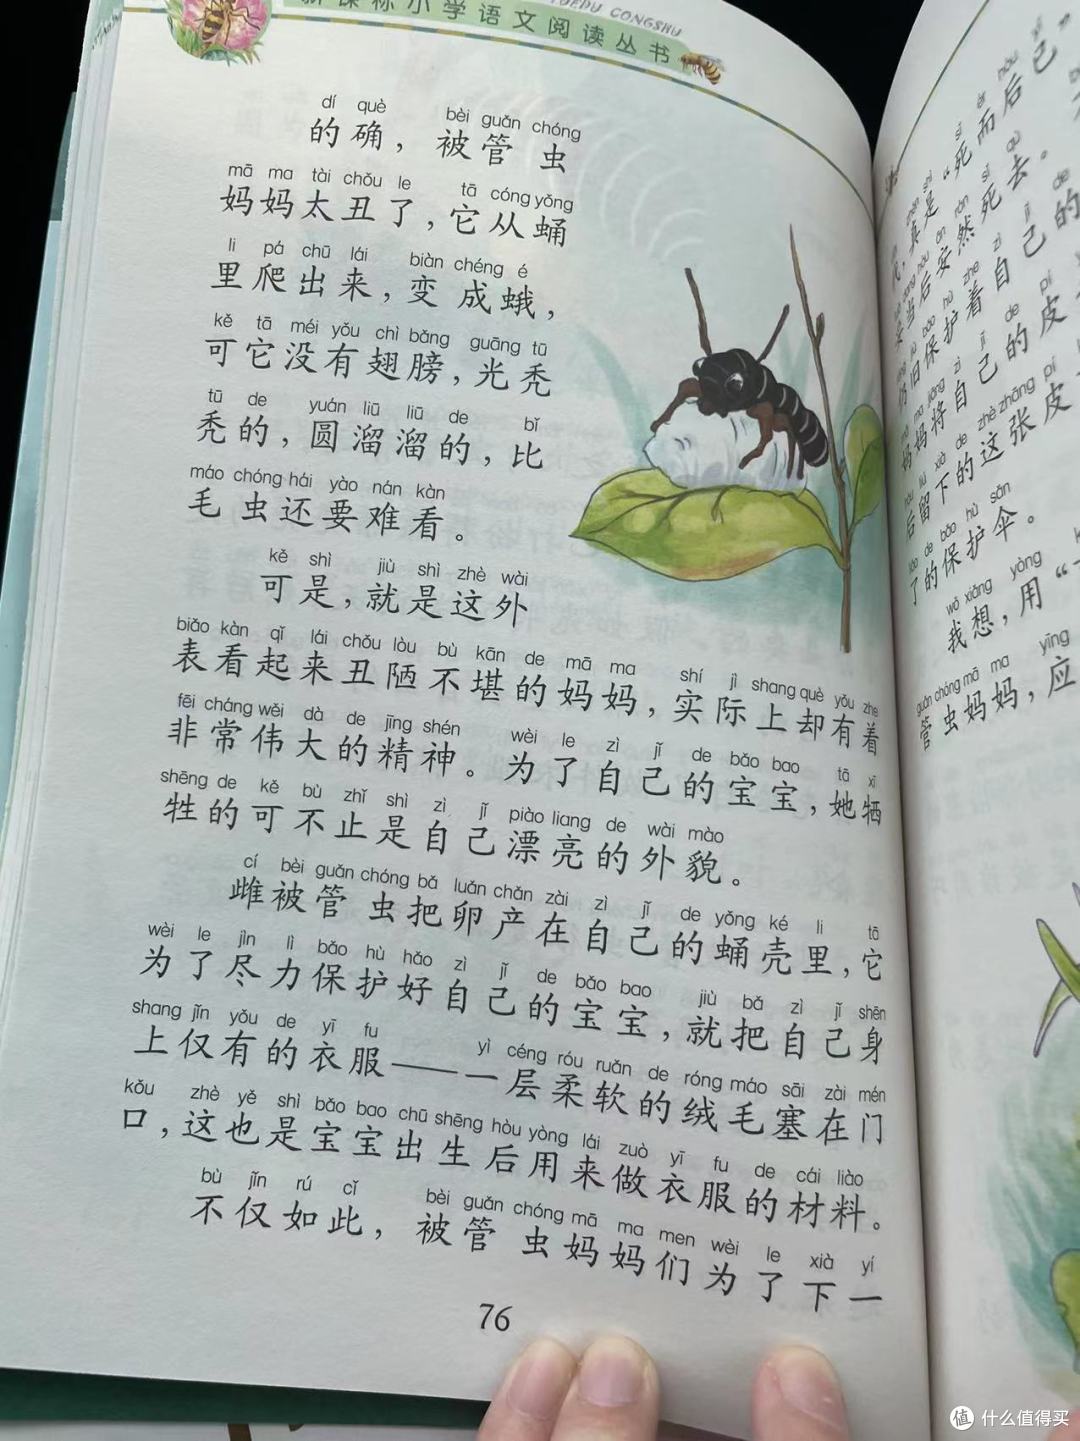 新课标小学语文阅读丛书
YUEDU CONGSHU
dí què bèi guǎn chóng
的确，被管虫
mā ma tài chǒu le tā cóng yǒng
妈妈太丑了，它从蛹
li pá chū lái biàn chéng é
里爬出来，变成蛾，
kě tā méi yǒu chì bǎng guāng tū
可它没有翅膀，光秃
tū de yuán liū liū de bǐ
秃的，圆溜溜的，比
máo chóng hái yào nán kàn
毛虫还要难看。
kě shì jiù shì zhè wài
可是，就是这外
biǎo kàn qǐ lái chǒu lòu bù kān de mā ma shí jì shang què yǒu zhe
表看起来丑陋不堪的妈妈，实际上却有着
fēi cháng wěi dà de jīng shén wèi le zì jǐ de bǎo bao tā xī
非常伟大的精神。为了自己的宝宝，她牺
shēng de kě bù zhǐ shì zì jǐ piào liang de wài mào
牲的可不止是自己漂亮的外貌。
cí bèi guǎn chóng bǎ luǎn chǎn zài zì jǐ de yǒng ké li tā
雌被管虫把卵产在自己的蛹壳里，它
wèi le jìn lì bǎo hù hǎo zì jǐ de bǎo bao jiù bǎ zì jǐ shēn
为了尽力保护好自己的宝宝，就把自己身
shang jǐn yǒu de yī fu yì céng róu ruǎn de róng máo sāi zài mén
上仅有的衣服——一层柔软的绒毛塞在门
kǒu zhè yě shì bǎo bao chū shēng hòu yòng lái zuò yī fu de cái liào
口，这也是宝宝出生后用来做衣服的材料。
bù jǐn rú cǐ bèi guǎn chóng mā ma men wèi le xià yí
不仅如此，被管虫妈妈们为了下一
76
真是“死而后己”
后安然死去。
保护着自己的
妈妈将自己的皮
hòu liú xià de zhè zhāng pí
后留下的这张皮
de bǎo hù sǎn
了的保护伞。
wǒ xiǎng yòng
我想，用“
guǎn chóng mā ma yīng
管虫妈妈，应
值 什么值得买